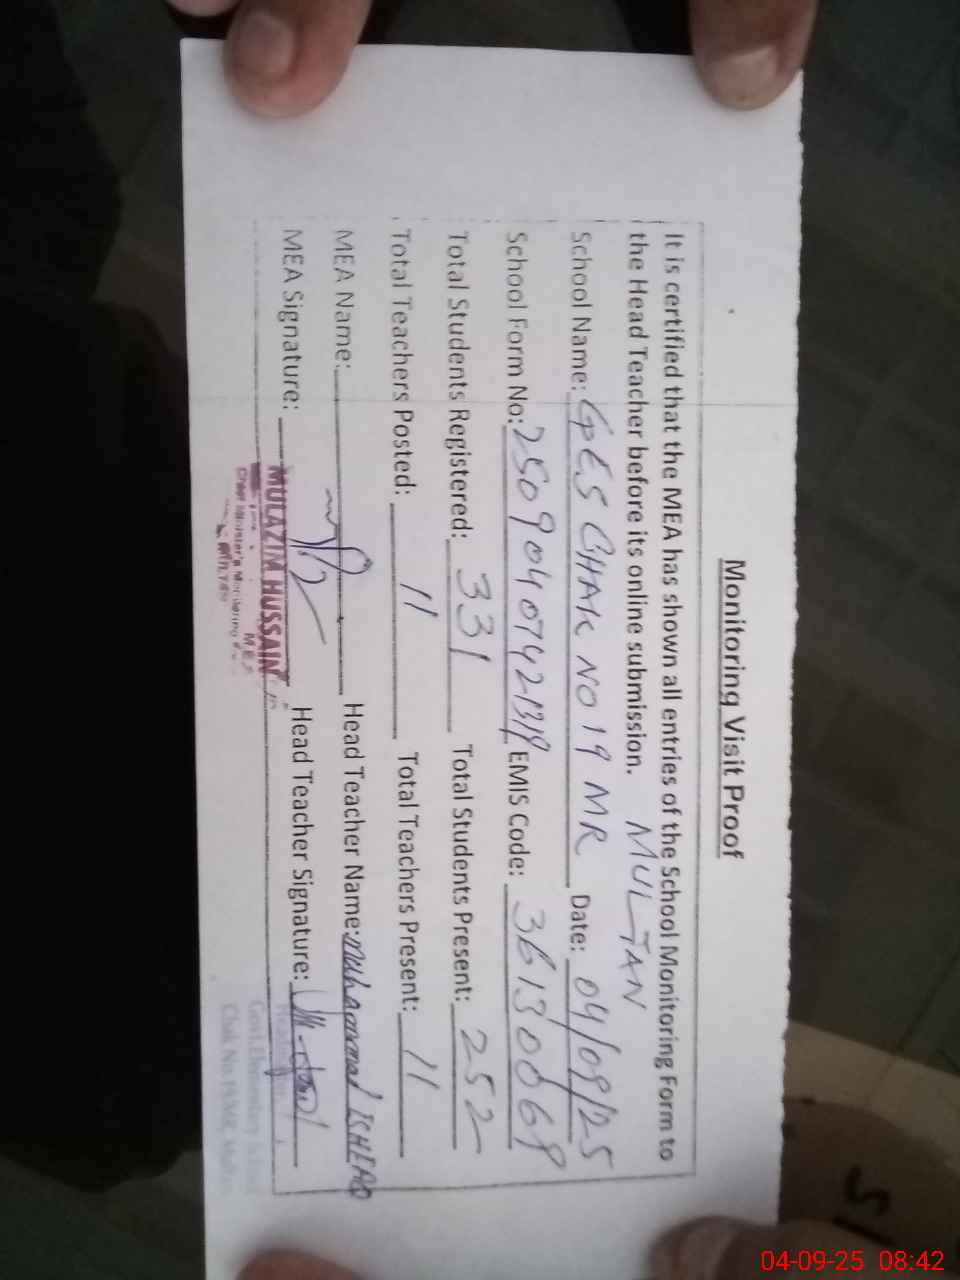 Monitoring Visit Proof
It is certified that the MEA has shown all entries of the School Monitoring Form to
the Head Teacher before its online submission. MULTAN
School Name: GES CHAK NO 19 MR Date: 04/09/25
School Form No: EMIS Code:
Total Students Registered: 331 Total Students Present: 252
Total Teachers Posted: 11 Total Teachers Present: 11
MEA Name: Head Teacher Name: Muhammad
MEA Signature: Head Teacher Signature:
MULAZIM HUSSAIN
Chief Minister's Monitoring
Govt. Elementary School
Chak No.19/MR, Multan
04-09-25 08:42